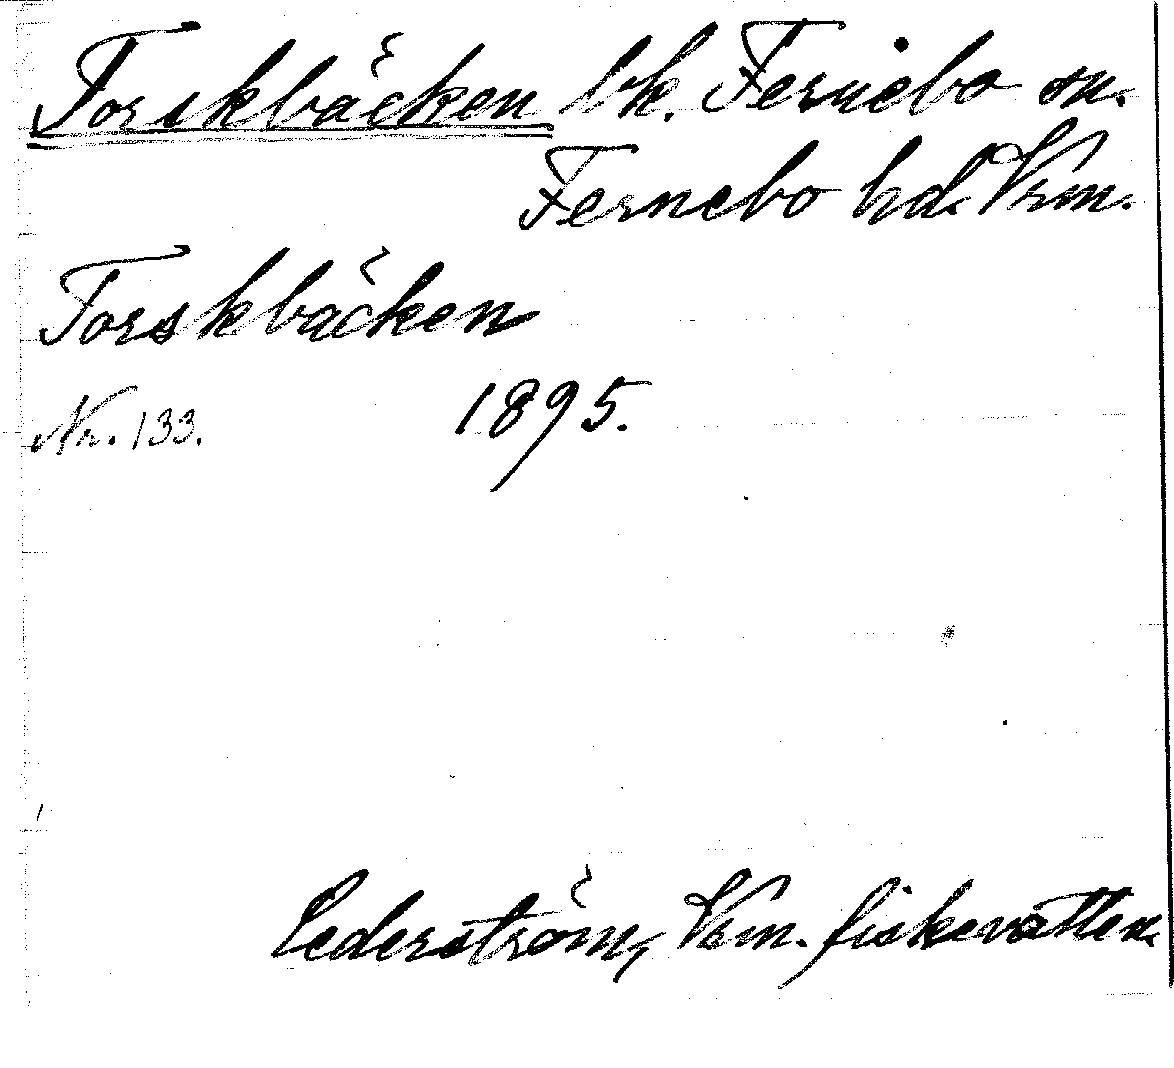 Torskbäcken bk. Fernebo sn.
Fernebo hd. Vrm.
Torskbäcken
Nr. 133. 1895.
Cederström, Vrm. fiskevatten.